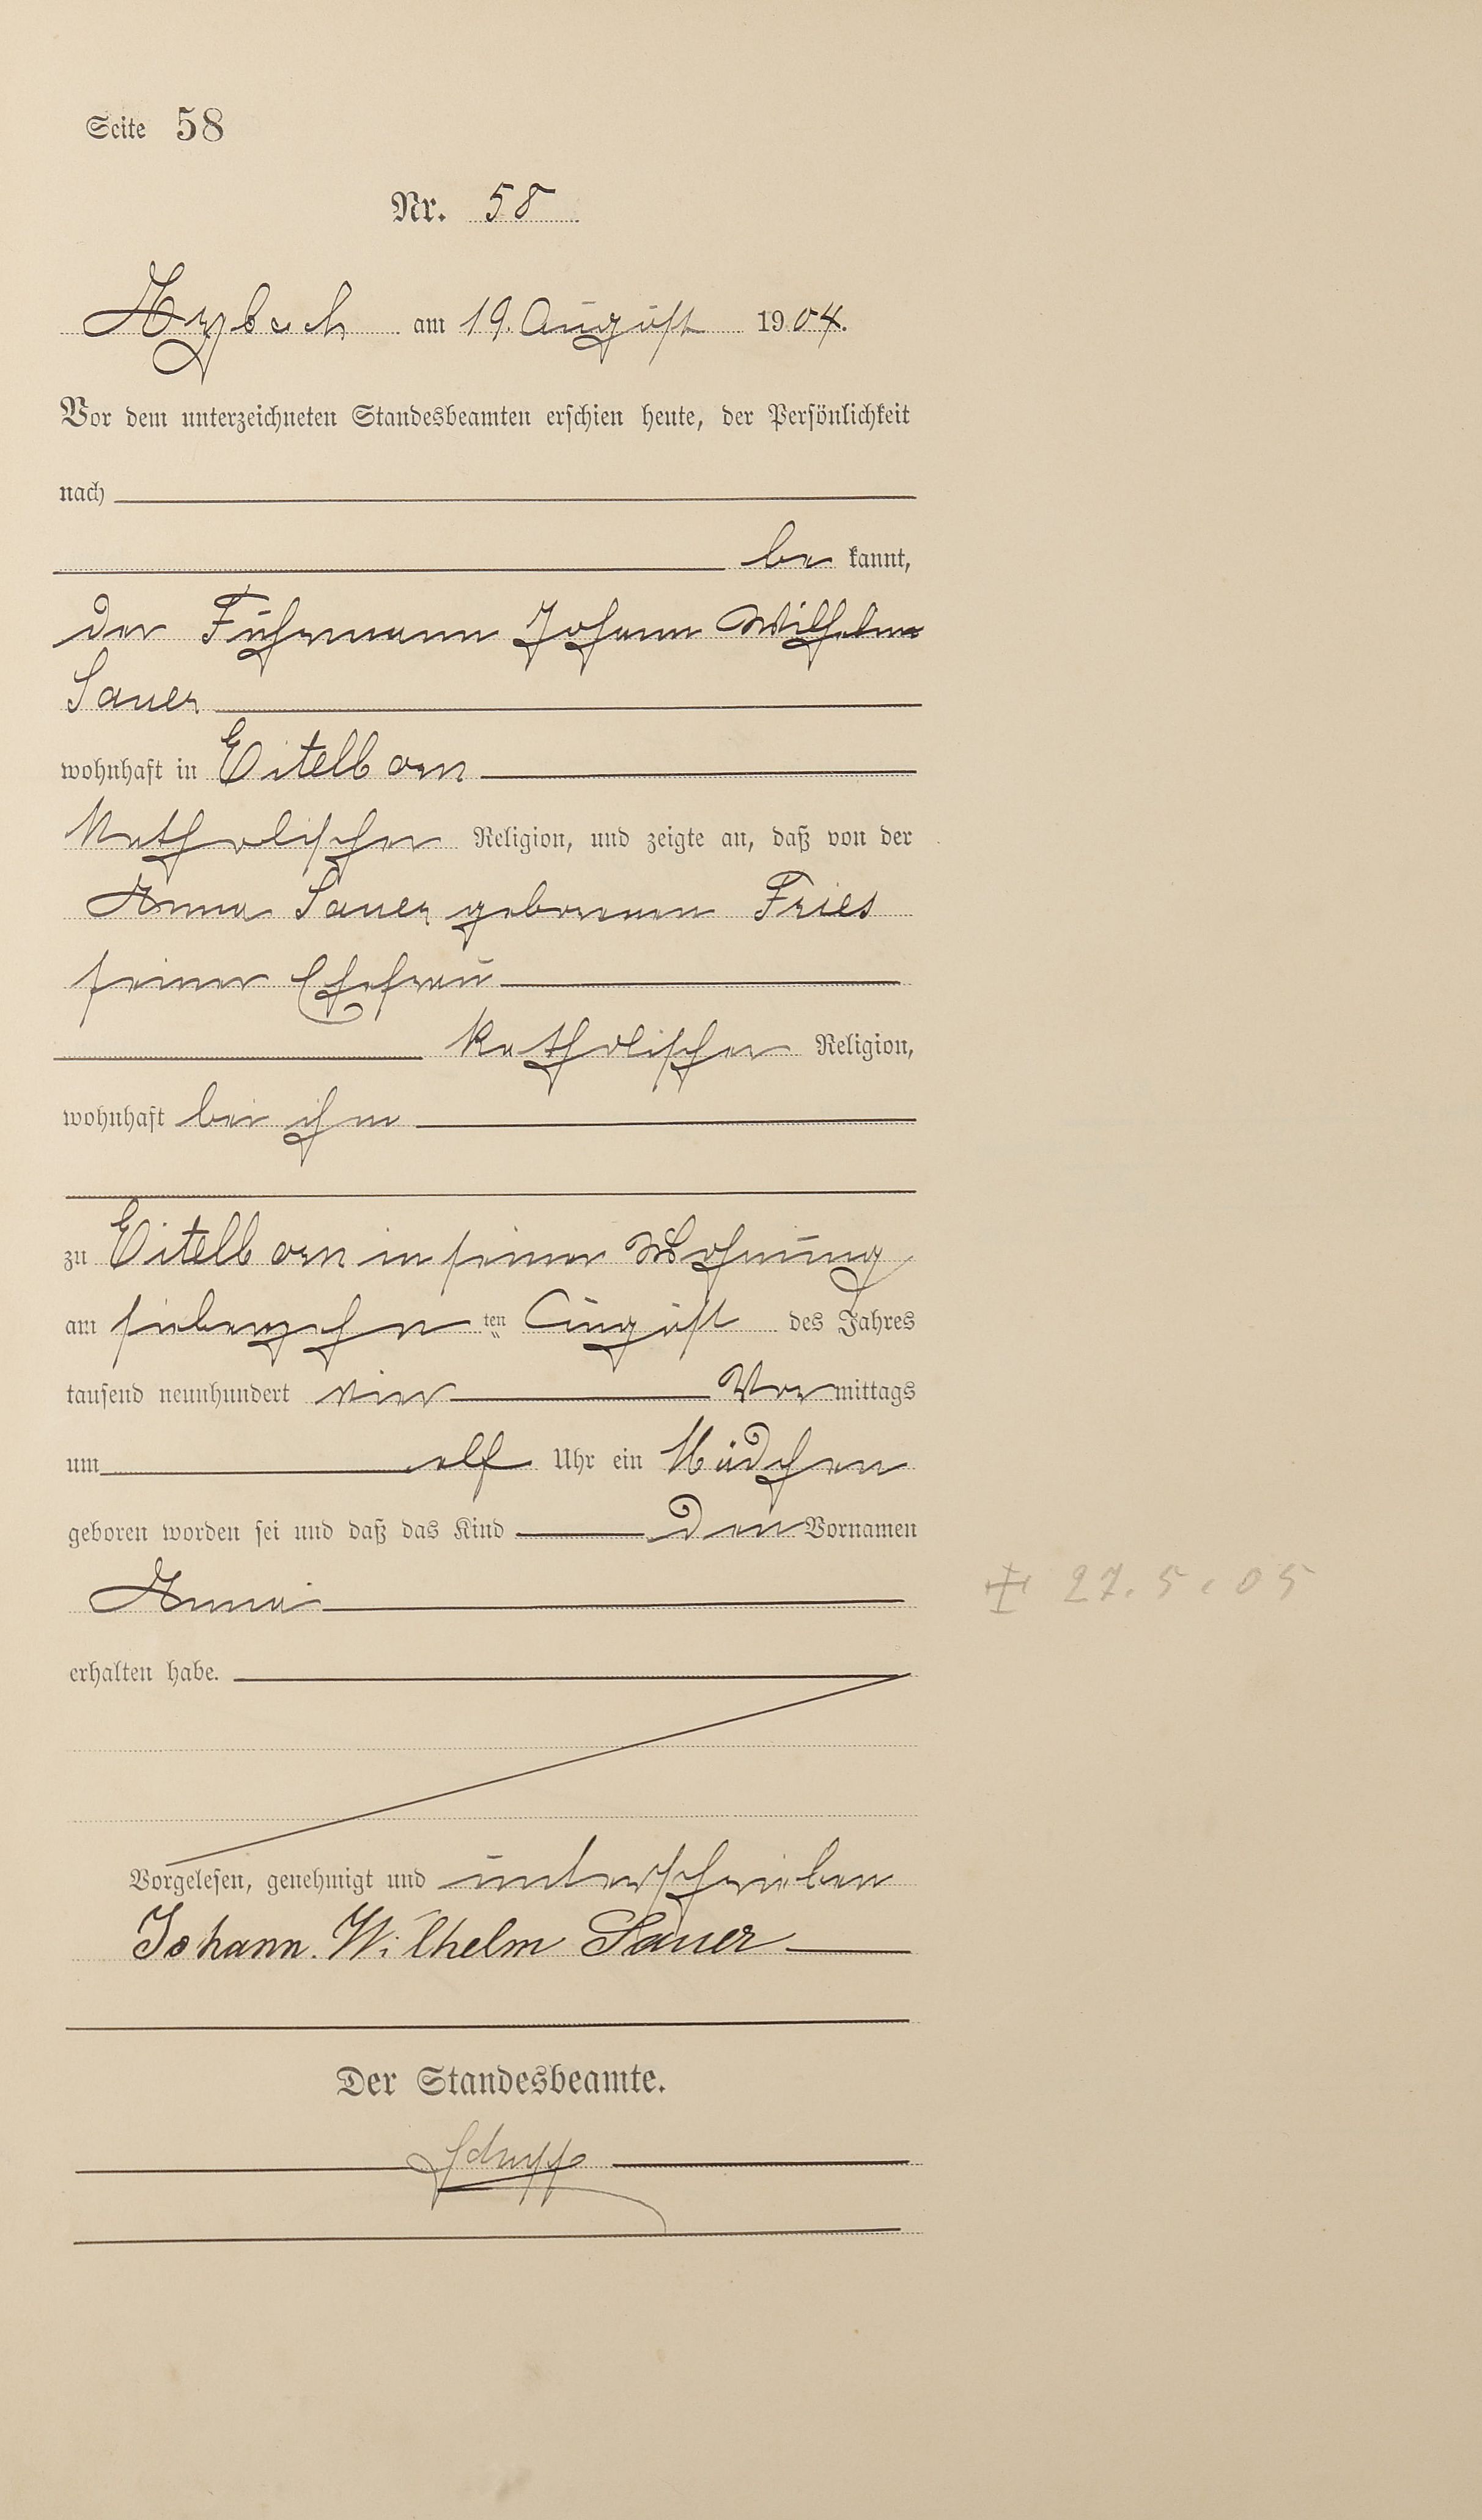 Seite 58
Nr. 58
Arzbach am 19. August 1904.
Vor dem unterzeichneten Standesbeamten erschien heute, der Persönlichkeit
nach
be kannt,
der Fuhrmann Johann Wilhelm
Sauer
wohnhaft in Eitelborn
katholischer Religion, und zeigte an, daß von der
Anna Sauer geborenen Fries
seiner Ehefrau
katholischer Religion,
wohnhaft bei ihm
zu Eitelborn in seiner Wohnung
am siebenzehnten August des Jahres
tausend neunhundert vier Vormittags
um elf Uhr ein Mädchen
geboren worden sei und daß das Kind den Vornamen
Anna
+ 27.5.05
erhalten habe.
Vorgelesen, genehmigt und unterschrieben
Johann. Wilhelm Sauer
Der Standesbeamte.
Schupp